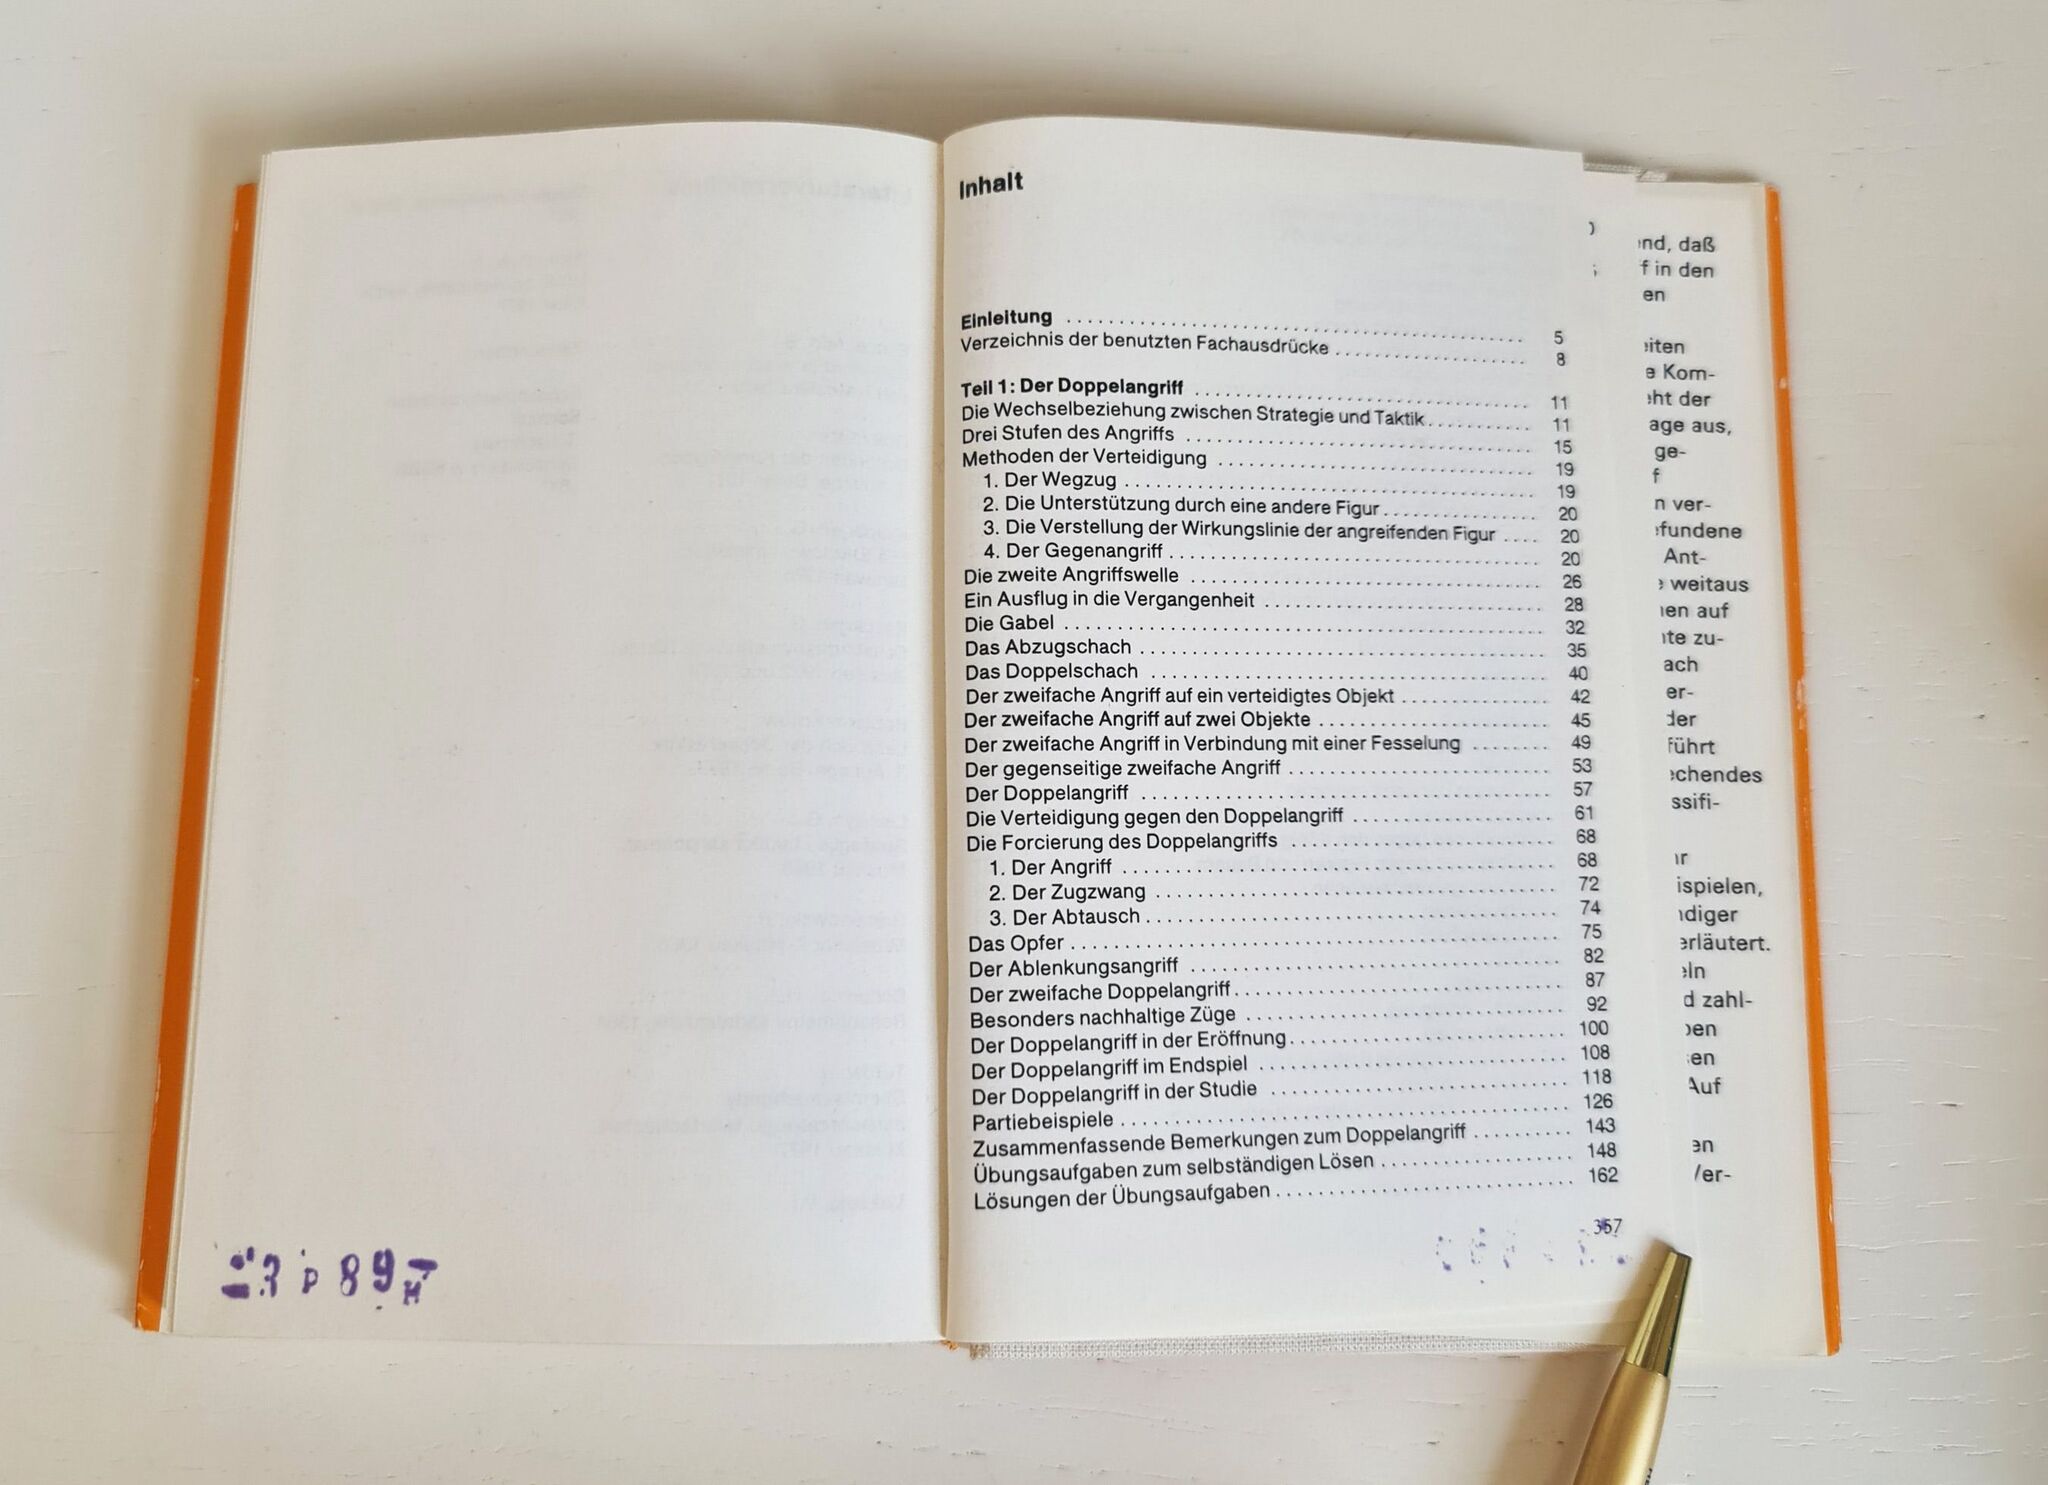 Inhalt
Einleitung 5
Verzeichnis der benutzten Fachausdrücke 8
Teil 1: Der Doppelangriff 11
Die Wechselbeziehung zwischen Strategie und Taktik 11
Drei Stufen des Angriffs 15
Methoden der Verteidigung 19
1. Der Wegzug 19
2. Die Unterstützung durch eine andere Figur 20
3. Die Verstellung der Wirkungslinie der angreifenden Figur 20
4. Der Gegenangriff 20
Die zweite Angriffswelle 26
Ein Ausflug in die Vergangenheit 28
Die Gabel 32
Das Abzugschach 35
Das Doppelschach 40
Der zweifache Angriff auf ein verteidigtes Objekt 42
Der zweifache Angriff auf zwei Objekte 45
Der zweifache Angriff in Verbindung mit einer Fesselung 49
Der gegenseitige zweifache Angriff 53
Der Doppelangriff 57
Die Verteidigung gegen den Doppelangriff 61
Die Forcierung des Doppelangriffs 68
1. Der Angriff 68
2. Der Zugzwang 72
3. Der Abtausch 74
Das Opfer 75
Der Ablenkungsangriff 82
Der zweifache Doppelangriff 87
Besonders nachhaltige Züge 92
Der Doppelangriff in der Eröffnung 100
Der Doppelangriff im Endspiel 108
Der Doppelangriff in der Studie 118
Partiebeispiele 126
Zusammenfassende Bemerkungen zum Doppelangriff 143
Übungsaufgaben zum selbständigen Lösen 148
Lösungen der Übungsaufgaben 162
357
daß
f in den
en
Kom-
der
aus,
ge-
ver-
Ant-
weitaus
auf
zu-
er-
erläutert.
zahl-
Auf